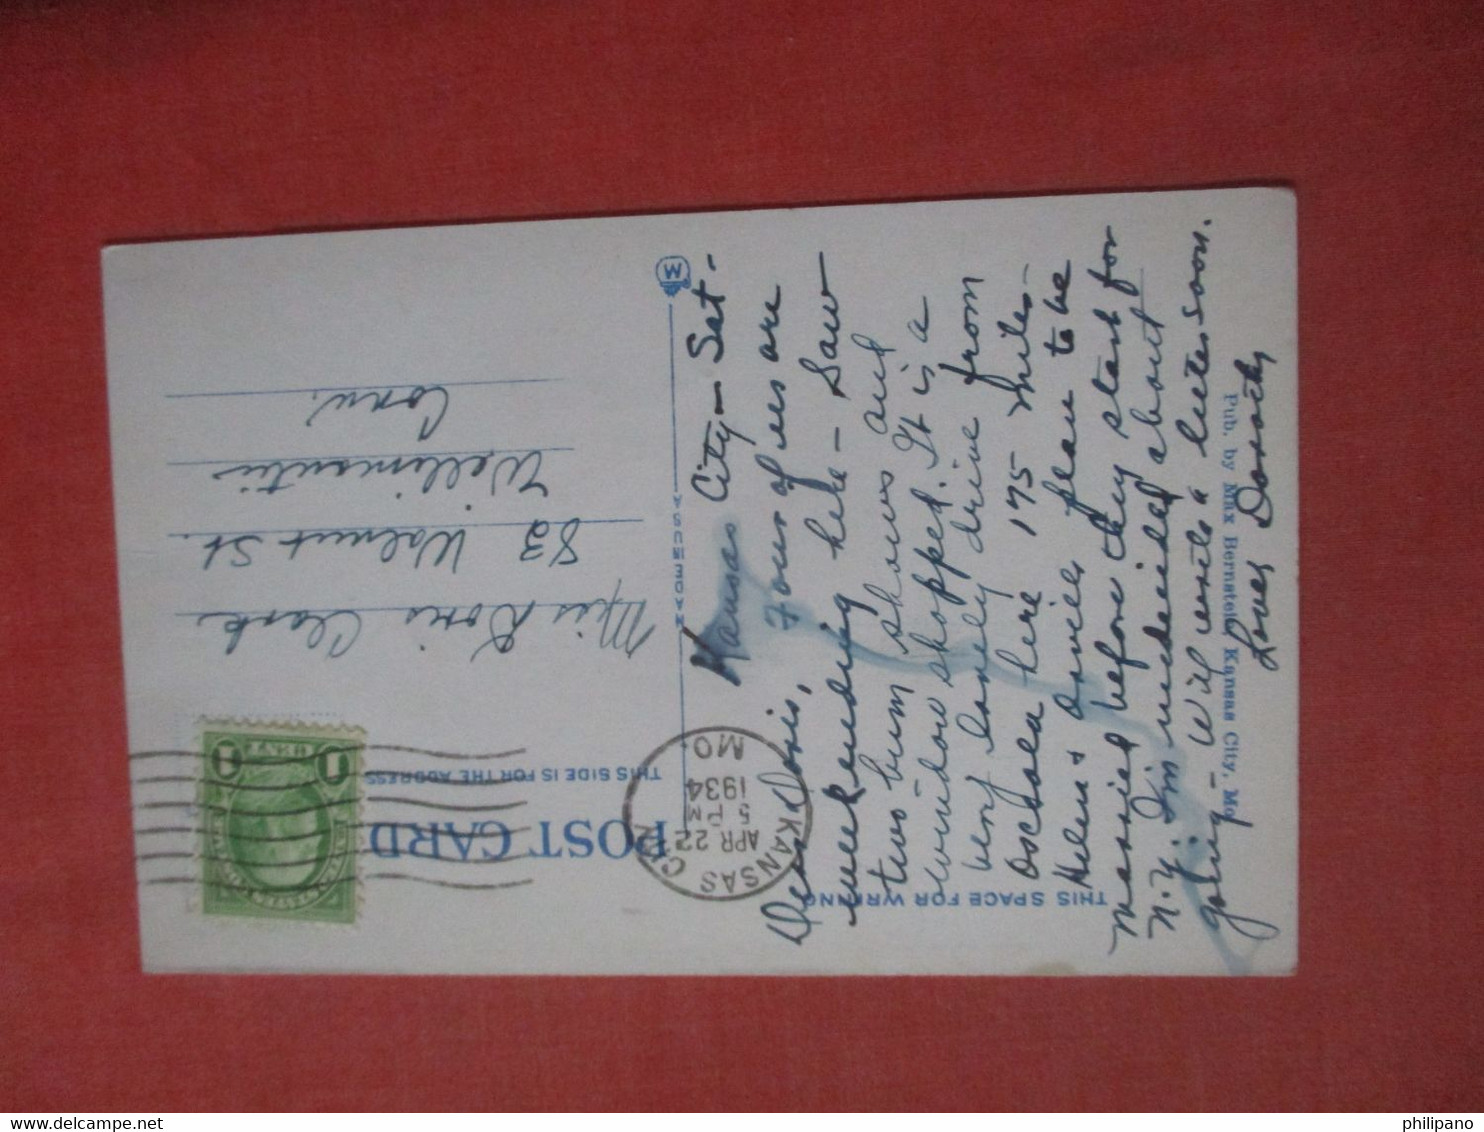 POST CARD
THIS SIDE IS FOR THE ADDRESS
THIS SPACE FOR WRITING
KANSAS CITY
APR 22
5 PM
1934
MO.
Miss Doris Clark
82 Walnut St.
Willimantic
Conn.
MADE IN U S A
M
Kansas City - Sat -
Dear Doris, Four of us are
weekending here - Saw
two bum shows and
window shopped. It is a
very lovely drive from
Osceola here 175 miles -
Helen & Orville plan to be
married before they start for
N.Y. I'm undecided about
going - Will write a letter soon.
Loves Dorothy
Pub. by Max Bernatein Kansas City, Mo
philipano
delcampe.net